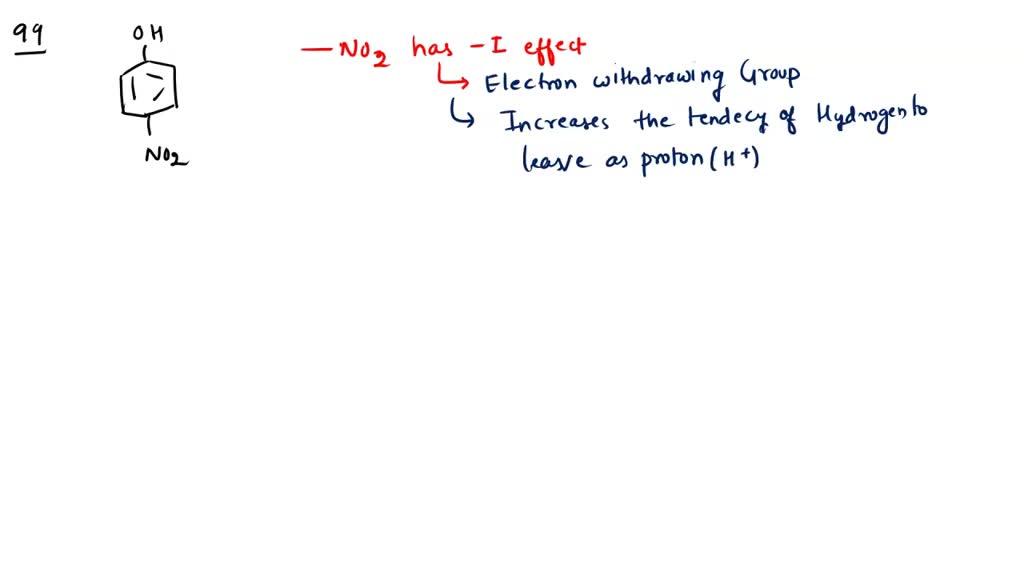 99
OH
NO2
— NO2 has -I effect
↳ Electron withdrawing Group
↳ Increases the tendecy of Hydrogen to
leave as proton (H+)